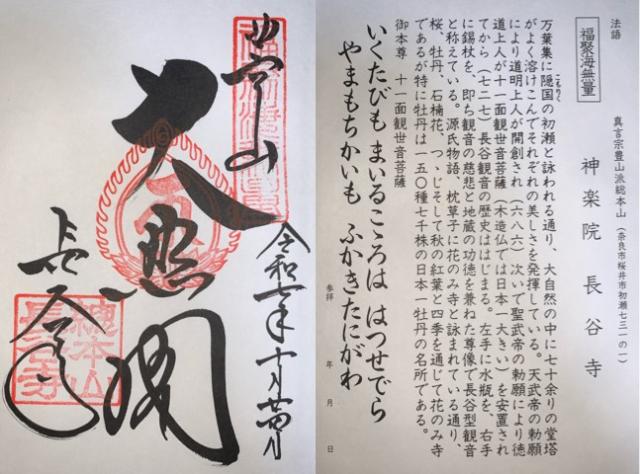 法語
福聚海無量
真言宗豊山派総本山(奈良市桜井市初瀬七三一の一)
神楽院 長谷寺
こもりく
万葉集に隠国の初瀬と詠われる通り、大自然の中に七十余りの堂塔
がよく溶けこんでそれぞれの美しさを発揮している。天武帝の勅願
により道明上人が開創され(六八六)次いで聖武帝の勅願により徳
道上人が十一面観世音菩薩(木造仏では日本一大きい)を安置され
てから(七二七)長谷観音の歴史ははじまる。左手に水瓶を、右手
に錫杖を、即ち観音の慈悲と地蔵の功徳を兼ねた尊像で長谷型観音
と称えている。源氏物語、枕草子に花のみ寺と詠まれている通り、
桜、牡丹、石楠花、つゝじそして秋の紅葉と四季を通じて花のみ寺
であるが特に牡丹は一五〇種七千株の日本一牡丹の名所である。
御本尊 十一面観世音菩薩
いくたびも まいるこころは はつせでら
やまもちかいも ふかきたにがわ
参拝 年 月 日
豊山
大悲閣
長谷寺
總本山
長谷寺
令和